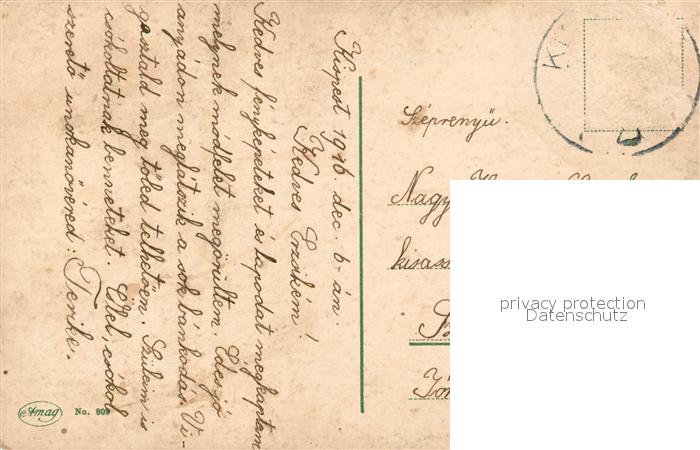 Kispest 1916 dec. 6-án.
Kedves Erzsikém!
Kedves fényképeteket és lapodat megkaptam
melynek módfelett megörültem. Édes jó
anyádon meglátszik a sok bánkodás. Vi-
gasztald meg tőled telhetően. Szüleim is
csókoltatnak benneteket. Ölel, csókol
szerető unokanővéred: Terike.
Széprenyü.
Nagy
kisass
privacy protection
Datenschutz
Amag No. 809